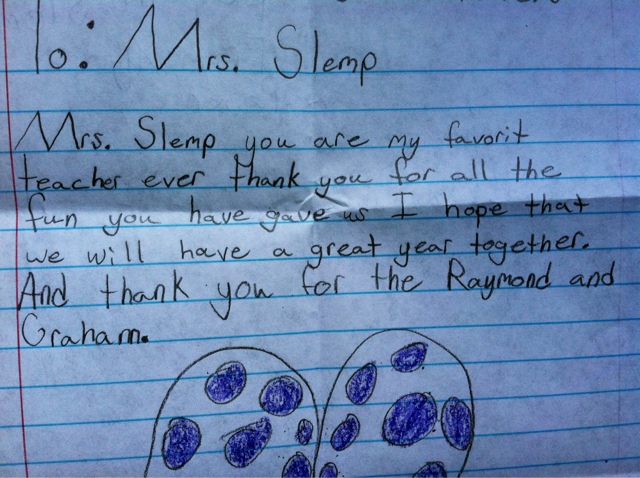 To: Mrs. Slemp
Mrs. Slemp you are my favorit
teacher ever thank you for all the
fun you have gave us I hope that
we will have a great year together.
And thank you for the Raymond and
Graham.